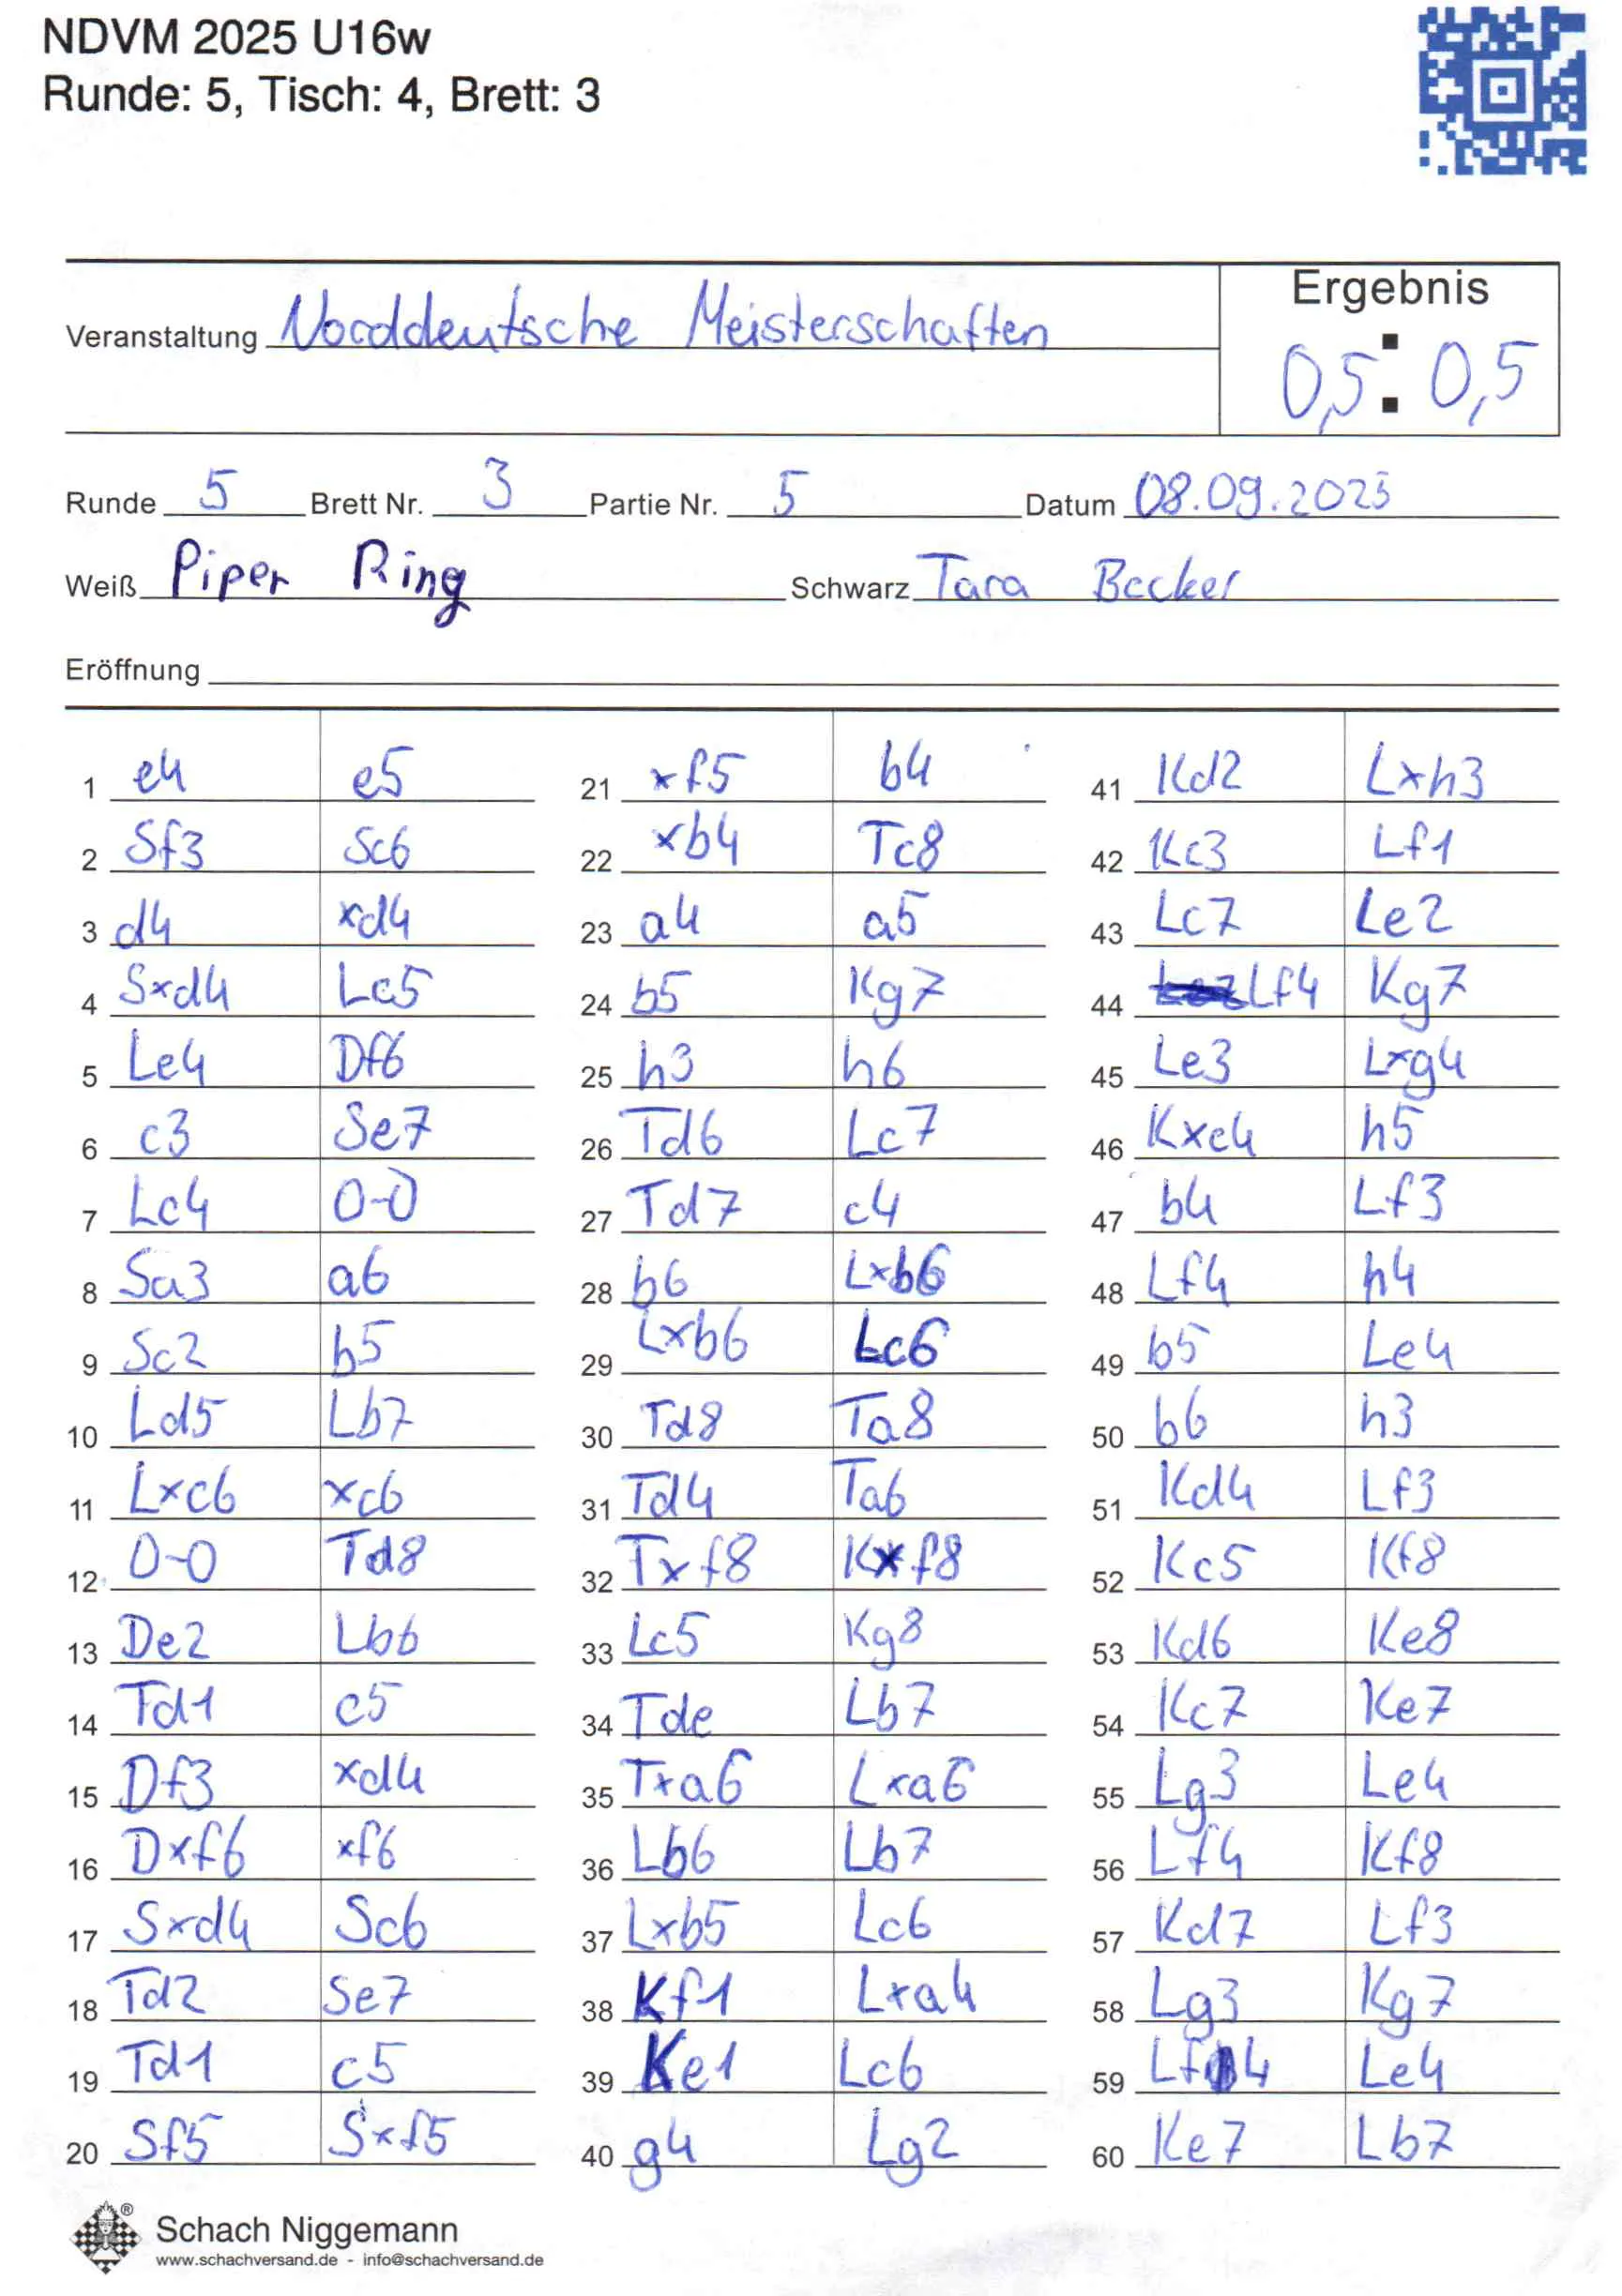 NDVM 2025 U16w
Runde: 5, Tisch: 4, Brett: 3
Veranstaltung Norddeutsche Meisterschaften
Ergebnis
0,5 : 0,5
Runde 5 Brett Nr. 3 Partie Nr. 5 Datum 08.09.2025
Weiß Piper Ring Schwarz Tara Becker
Eröffnung
1 e4 e5
2 Sf3 Sc6
3 d4 xd4
4 Sxd4 Lc5
5 Le4 Df6
6 c3 Se7
7 Lc4 0-0
8 Sa3 a6
9 Sc2 b5
10 Ld5 Lb7
11 Lxc6 xc6
12 0-0 Td8
13 De2 Lb6
14 Td1 c5
15 Df3 xd4
16 Dxf6 xf6
17 Sxd4 Sc6
18 Td2 Se7
19 Td1 c5
20 Sf5 Sxf5
21 xf5 b4
22 xb4 Tc8
23 a4 a5
24 b5 Kg7
25 h3 h6
26 Td6 Lc7
27 Td7 c4
28 b6 Lxb6
29 Lxb6 Lc6
30 Td8 Ta8
31 Td4 Ta6
32 Txf8 Kxf8
33 Lc5 Kg8
34 Tde Lb7
35 Txa6 Lxa6
36 Lb6 Lb7
37 Lxb5 Lc6
38 Kf1 Lxa4
39 Ke1 Lc6
40 g4 Lg2
41 Kd2 Lxh3
42 Kc3 Lf1
43 Lc7 Le2
44 Lf4 Kg7
45 Le3 Lxg4
46 Kxc4 h5
47 b4 Lf3
48 Lf4 h4
49 b5 Le4
50 b6 h3
51 Kd4 Lf3
52 Kc5 Kf8
53 Kd6 Ke8
54 Kc7 Ke7
55 Lg3 Le4
56 Lf4 Kf8
57 Kd7 Lf3
58 Lg3 Kg7
59 Lf4 Le4
60 Ke7 Lb7
Schach Niggemann
www.schachversand.de - info@schachversand.de